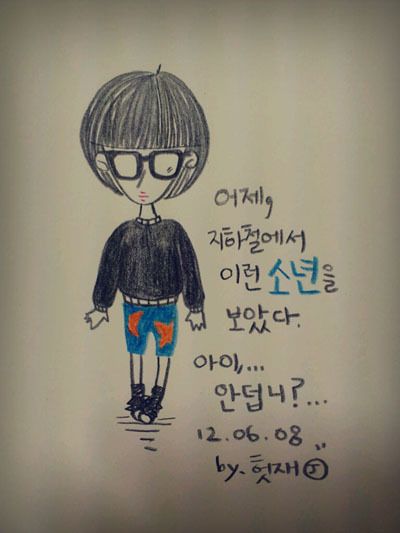 어제,
지하철에서
이런 소년을
보았다.
아이,...
안덥니?...
12.06.08
by. 헛재